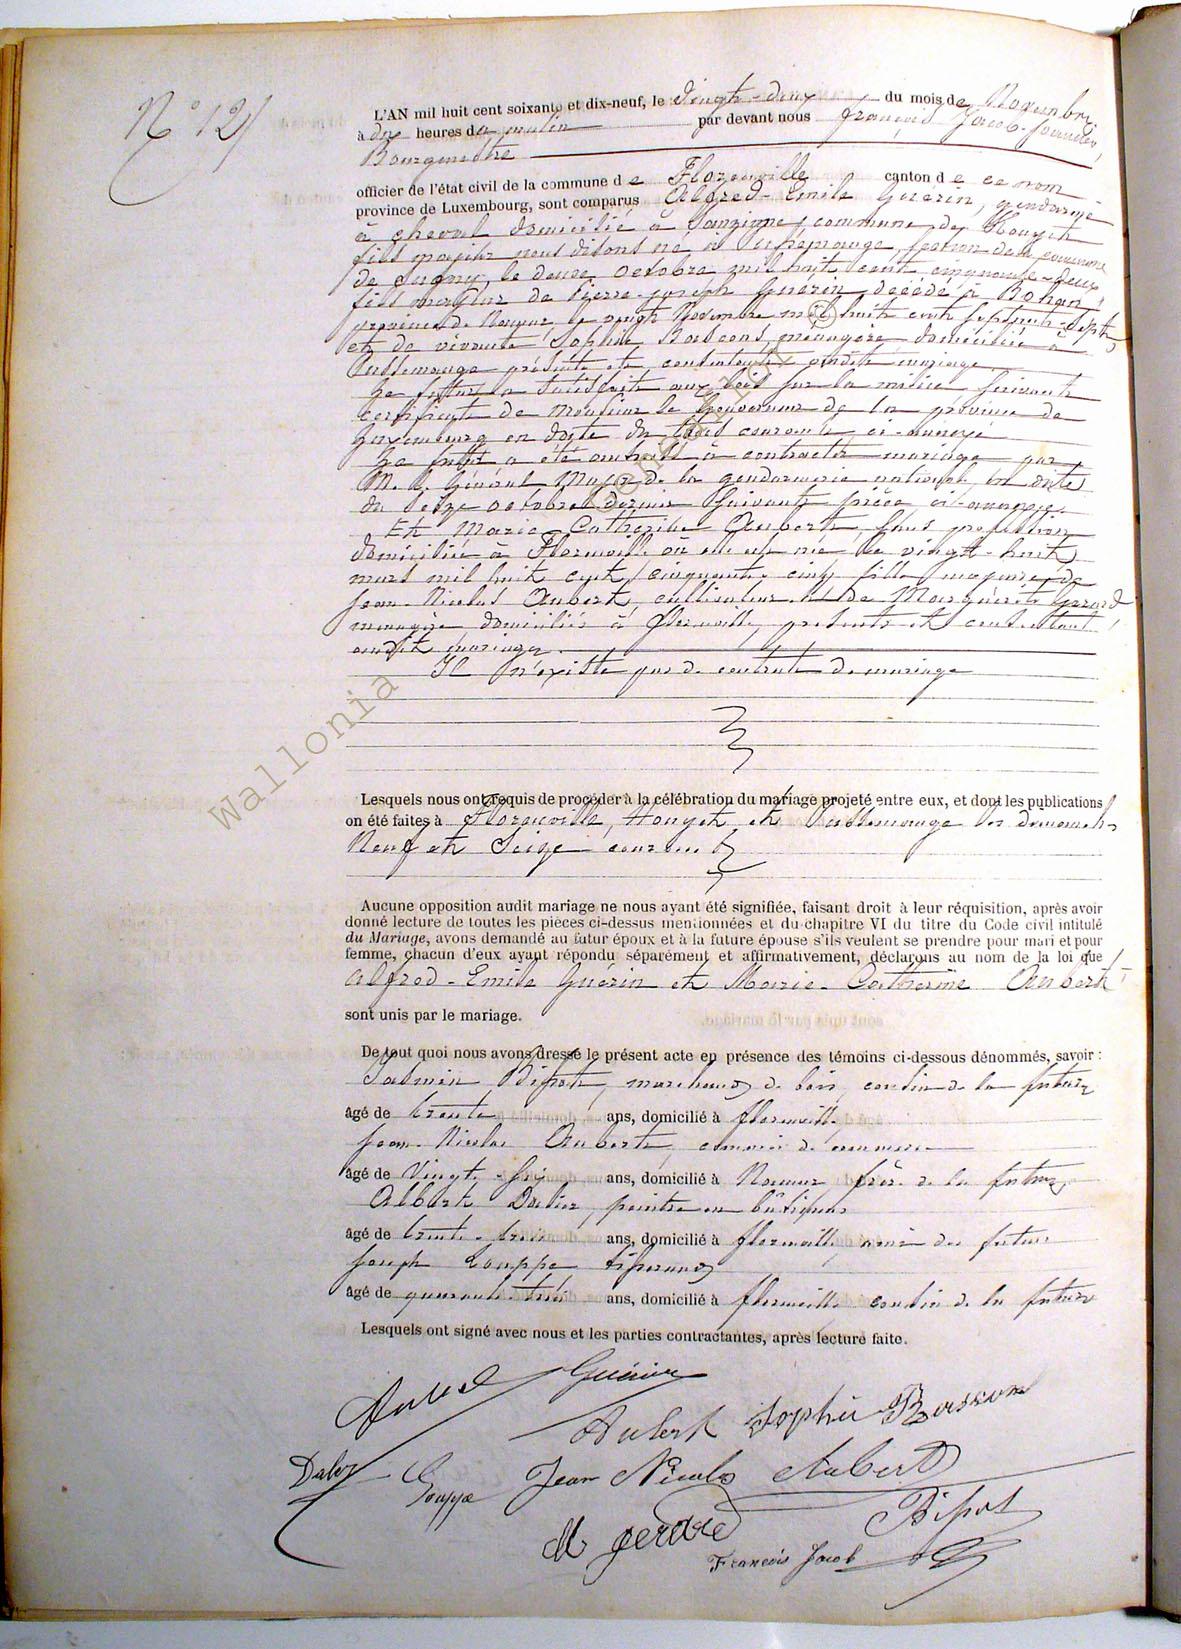 N° 12
L'AN mil huit cent soixante et dix-neuf, le Vingt-deux du mois de Novembre
à dix heures du matin par devant nous François Jacob
Bourgmestre
officier de l'état civil de la commune de Florenville canton de ce nom
province de Luxembourg, sont comparus Alfred-Emile Guérin, gendarme
à cheval domicilié à commune de Houyet
fils majeur nous disons né à section de la commune
de Sugny, le douze Octobre mil huit cent cinquante-deux
fils majeur de Pierre-joseph Guérin décédé à Bohan
province de Namur le vingt Novembre mil huit cent septante-sept
et de vivante Sophie ménagère domiciliée à
Pussemange présente et consentante audit mariage
Le futur a satisfait aux lois sur la milice suivant
certificat de Monsieur le Gouverneur de la province de
Luxembourg en date du trois courant, ci-annexé
Le futur a été autorisé à contracter mariage par
M. le Général Major de la gendarmerie nationale, en date
du seize octobre dernier suivant pièce ci-annexée.
Et Marie-Catherine Aubert, sans profession
domiciliée à Florenville où elle est née le vingt-huit
mars mil huit cent cinquante-cinq fille majeure de
Jean-Nicolas Aubert, cultivateur et de Marguerite
ménagère, domiciliés à florenville, présents et consentant
audit mariage.
Il n'existe pas de contrat de mariage
Lesquels nous ont requis de procéder à la célébration du mariage projeté entre eux, et dont les publications
on été faites à Florenville, Houyet et Pussemange les dimanches
Neuf et Seize courant
Aucune opposition audit mariage ne nous ayant été signifiée, faisant droit à leur réquisition, après avoir
donné lecture de toutes les pièces ci-dessus mentionnées et du chapitre VI du titre du Code civil intitulé
du Mariage, avons demandé au futur époux et à la future épouse s'ils veulent se prendre pour mari et pour
femme, chacun d'eux ayant répondu séparément et affirmativement, déclarons au nom de la loi que
Alfred-Emile Guérin et Marie-Catherine Aubert
sont unis par le mariage.
De tout quoi nous avons dressé le présent acte en présence des témoins ci-dessous dénommés, savoir :
marchand de bois, cousin de la future
âgé de trente ans, domicilié à florenville
Jean-Nicolas Aubert, commis de
âgé de Vingt-six ans, domicilié à Namur frère de la future
Albert peintre en bâtiments
âgé de trente-trois ans, domicilié à florenville, ami du futur
Joseph Gouppe tisserand
âgé de quarante-trois ans, domicilié à florenville cousin de la future
Lesquels ont signé avec nous et les parties contractantes, après lecture faite.
Guérin
Aubert Sophie
Gouppe Jean Nicolas Aubert
François Jacob
Wallonia